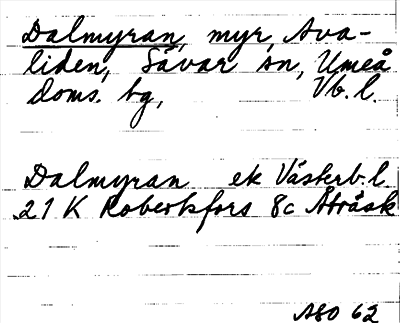 Dalmyran, myr, Ava-
liden, Sävar sn, Umeå
doms. bg, Vb. l.
Dalmyran ek Västerb. l.
21 K Robertsfors 8c Åträsk
ASO 62